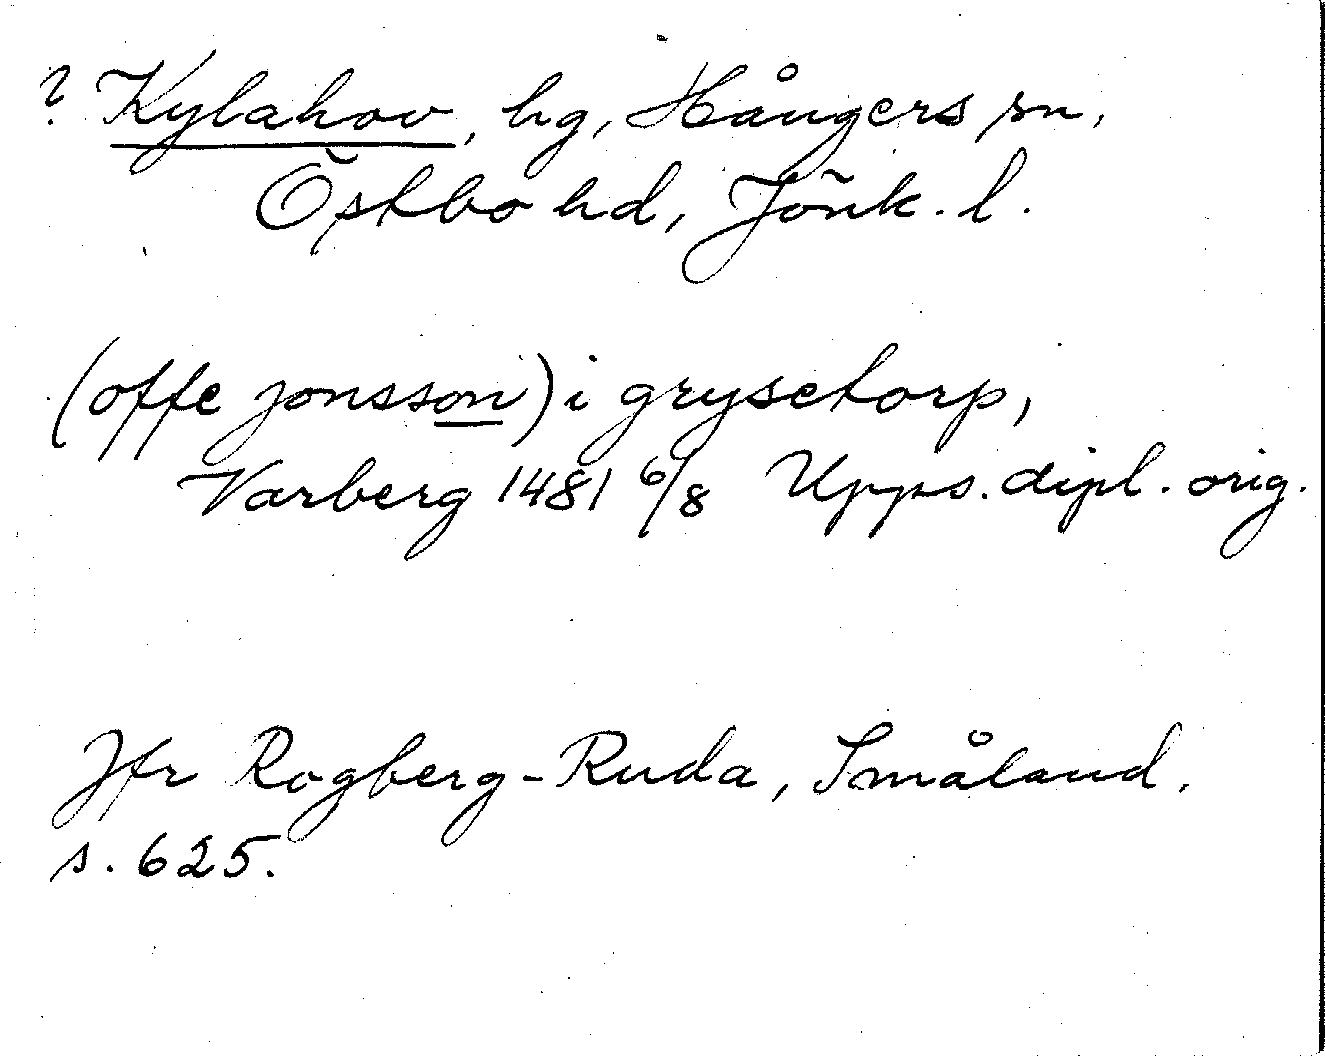 ? Kylahov, hg, Hångers sn,
Östbo hd, Jönk. l.
(offe jonsson) i grysetorp,
Varberg 1481 6/8 Upps. dipl. orig.
Jfr Rogberg-Ruda, Småland,
s. 625.